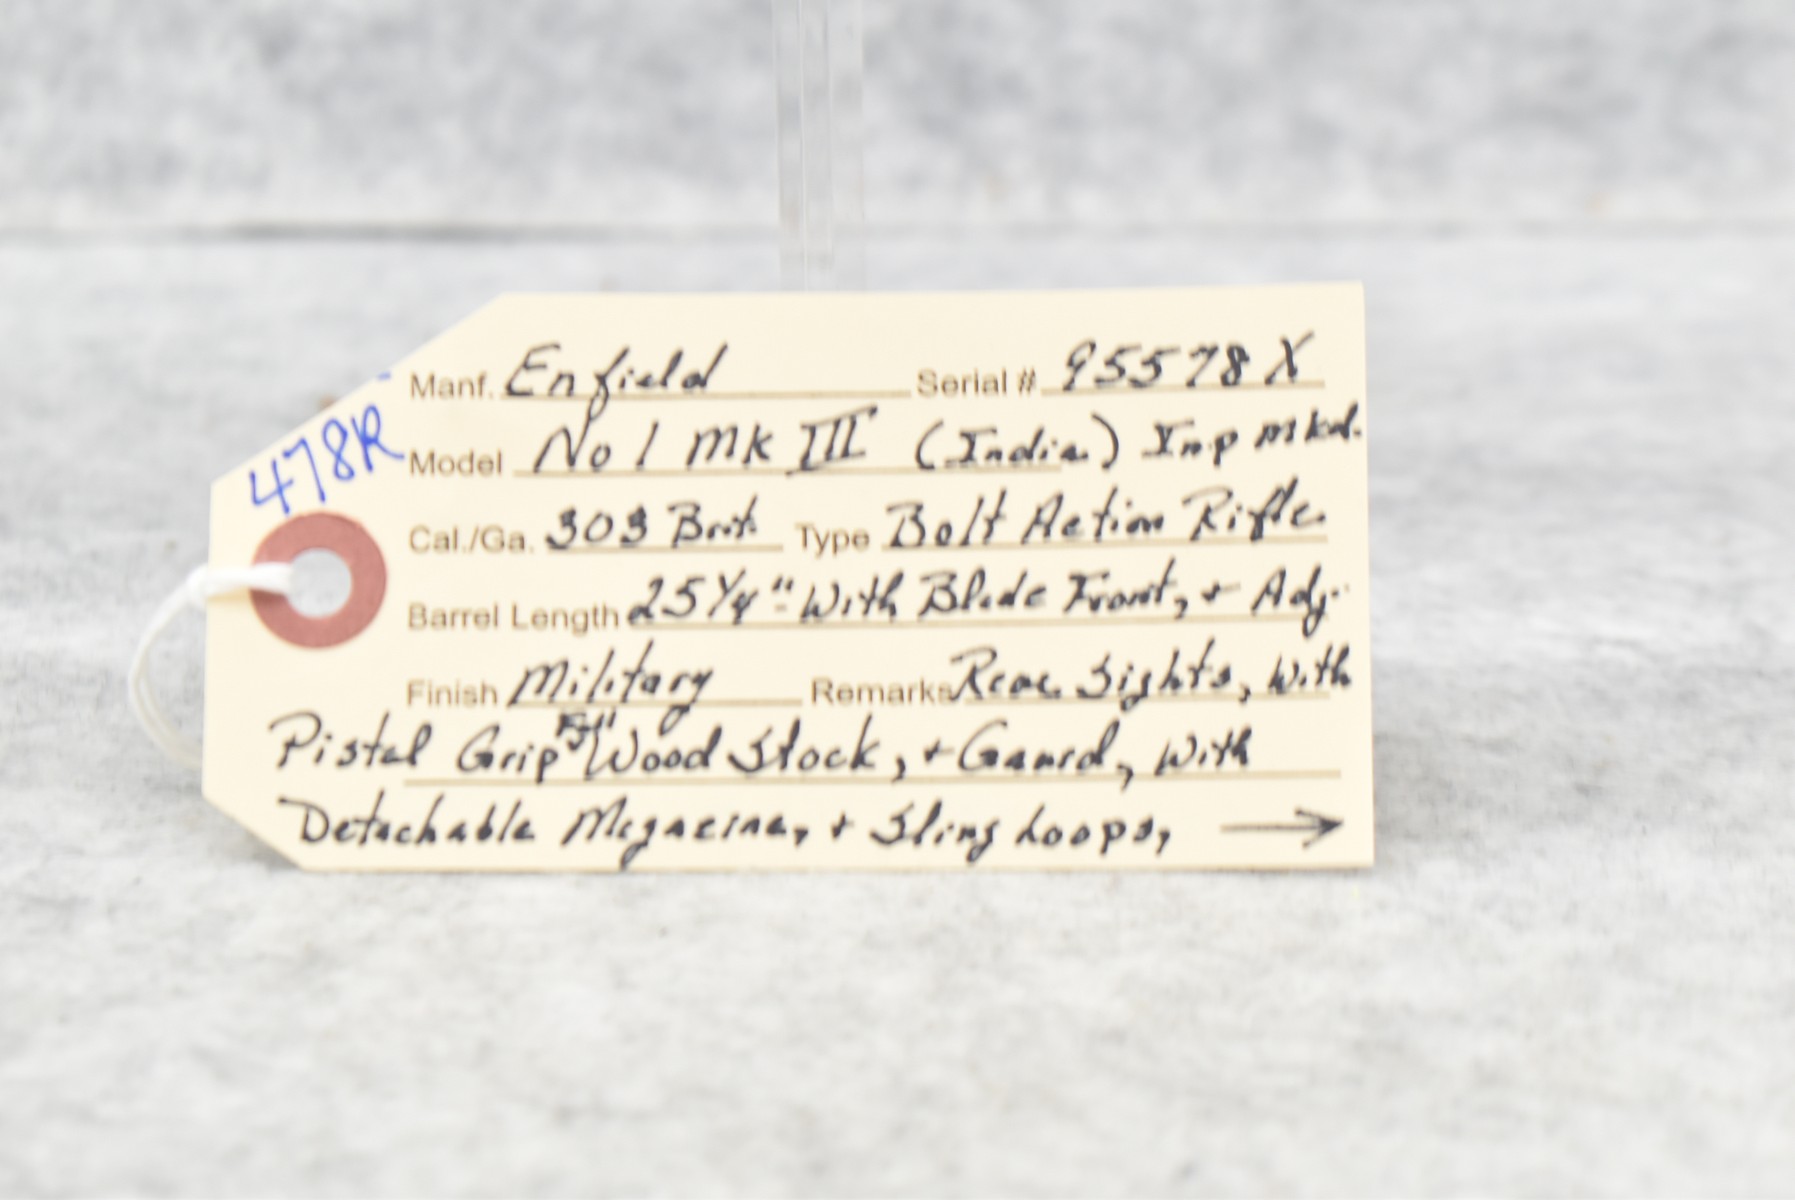 478R
Manf. Enfield Serial # 95578X
Model No 1 MK III (India) Imp mkd.
Cal./Ga. 303 Brit. Type Bolt Action Rifle
Barrel Length 25 1/4" With Blade Front, + Adj.
Finish Military Remarks Rear Sights, With
Pistol Grip Wood Stock, + Gaurd, With
Detachable Magazine, + Sling Loops, →